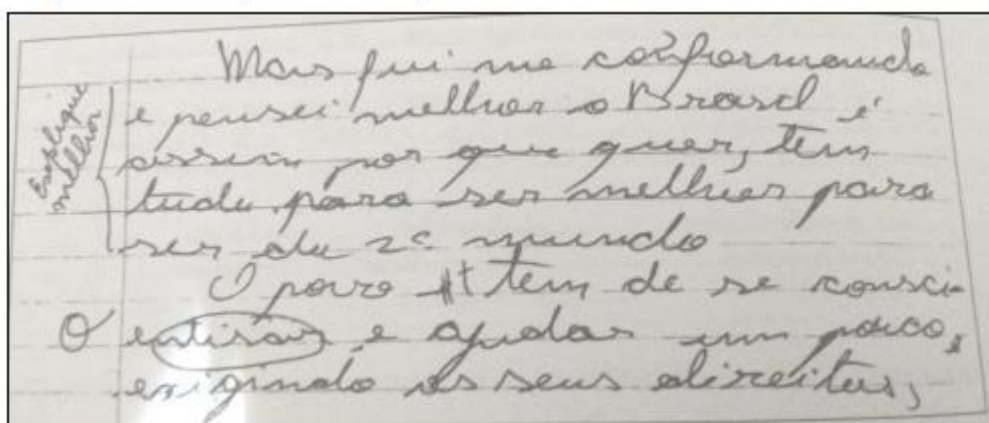 Mais fui me conformando
e pensei melhor o Brasil é
assim por que quer, tem
tudo para ser melhor para
ser do 2º mundo
O povo tem de se consci-
entisar e ajudar um pouco,
exigindo os seus direitos,
Explique
melhor
O